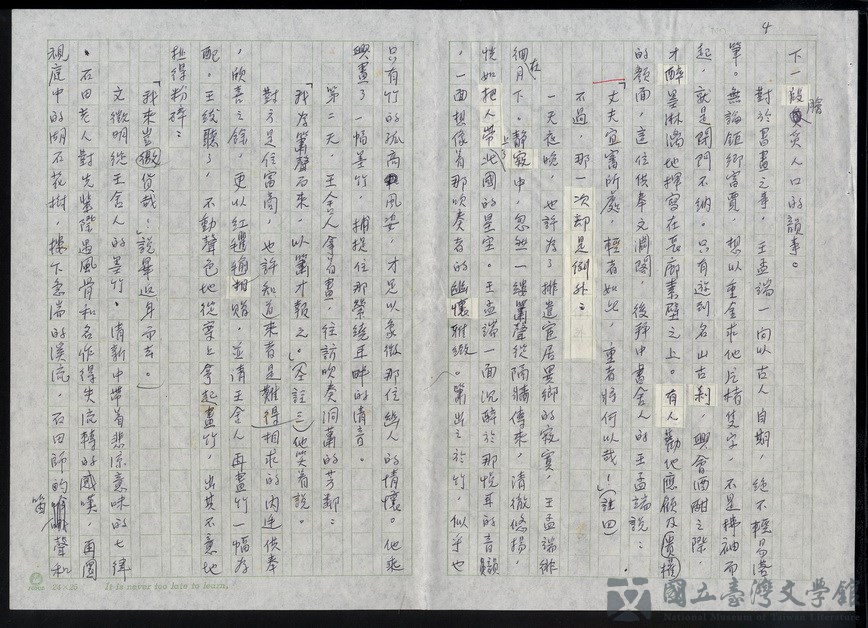 4
下一段膾炙人口的韻事。
對於書畫之事，王孟端一向以古人自期，絕不輕易落
筆。無論鉅卿富賈，想以重金求他片楮隻字，不是拂袖而
起，就是閉門不納。只有遊到名山古剎，興會酒酣之際，
才醉墨淋漓地揮寫在長廊素壁之上。有人勸他應顧及貴權
的顏面，這位供奉文淵閣，後拜中書舍人的王孟端說：
「丈夫宜審所處，輕者如此，重者將何以哉！」（註四）
不過，那一次卻是例外：
一天夜晚，也許為了排遣宦居異鄉的寂寞，王孟端徘
徊在月下。靜寂中，忽然一縷簫聲從隔牆傳來，清徹悠揚，
恍如把人帶
北國的星空。王孟端一面沉醉於那悅耳的音韻
，一面想像着那吹奏者的幽懷雅緻。筆出之於竹，似乎也
只有竹的孤高風姿，才足以象徵那位幽人的情懷。他乘
興畫了一幅墨竹，捕捉住那縈繞耳畔的清音。
第二天，王舍人拿着畫，往訪吹奏洞簫的芳鄰：
「我為簫聲而來，以簫才報之。」（同註三）他笑着說。
對方是位富商，也許知道來者是難得相求的內廷供奉
，欣喜之餘，更以紅氍毹相贈，並請王舍人再畫竹一幅為
配。王紱聽了，不動聲色地從案上拿起畫竹，出其不意地
扯得粉碎：
「我來豈徵貨哉！」說畢返身而去。）
文徵明從王舍人的墨竹，清新中帶着悲涼意味的七律
，石田老人對先輩際遇風骨和名作得失流轉的感嘆，再回
視庭中的湖石花樹，樓下急湍的溪流，石田師的笛聲和
24×25 It is never too late to learn.
國立臺灣文學館
National Museum of Taiwan Literature